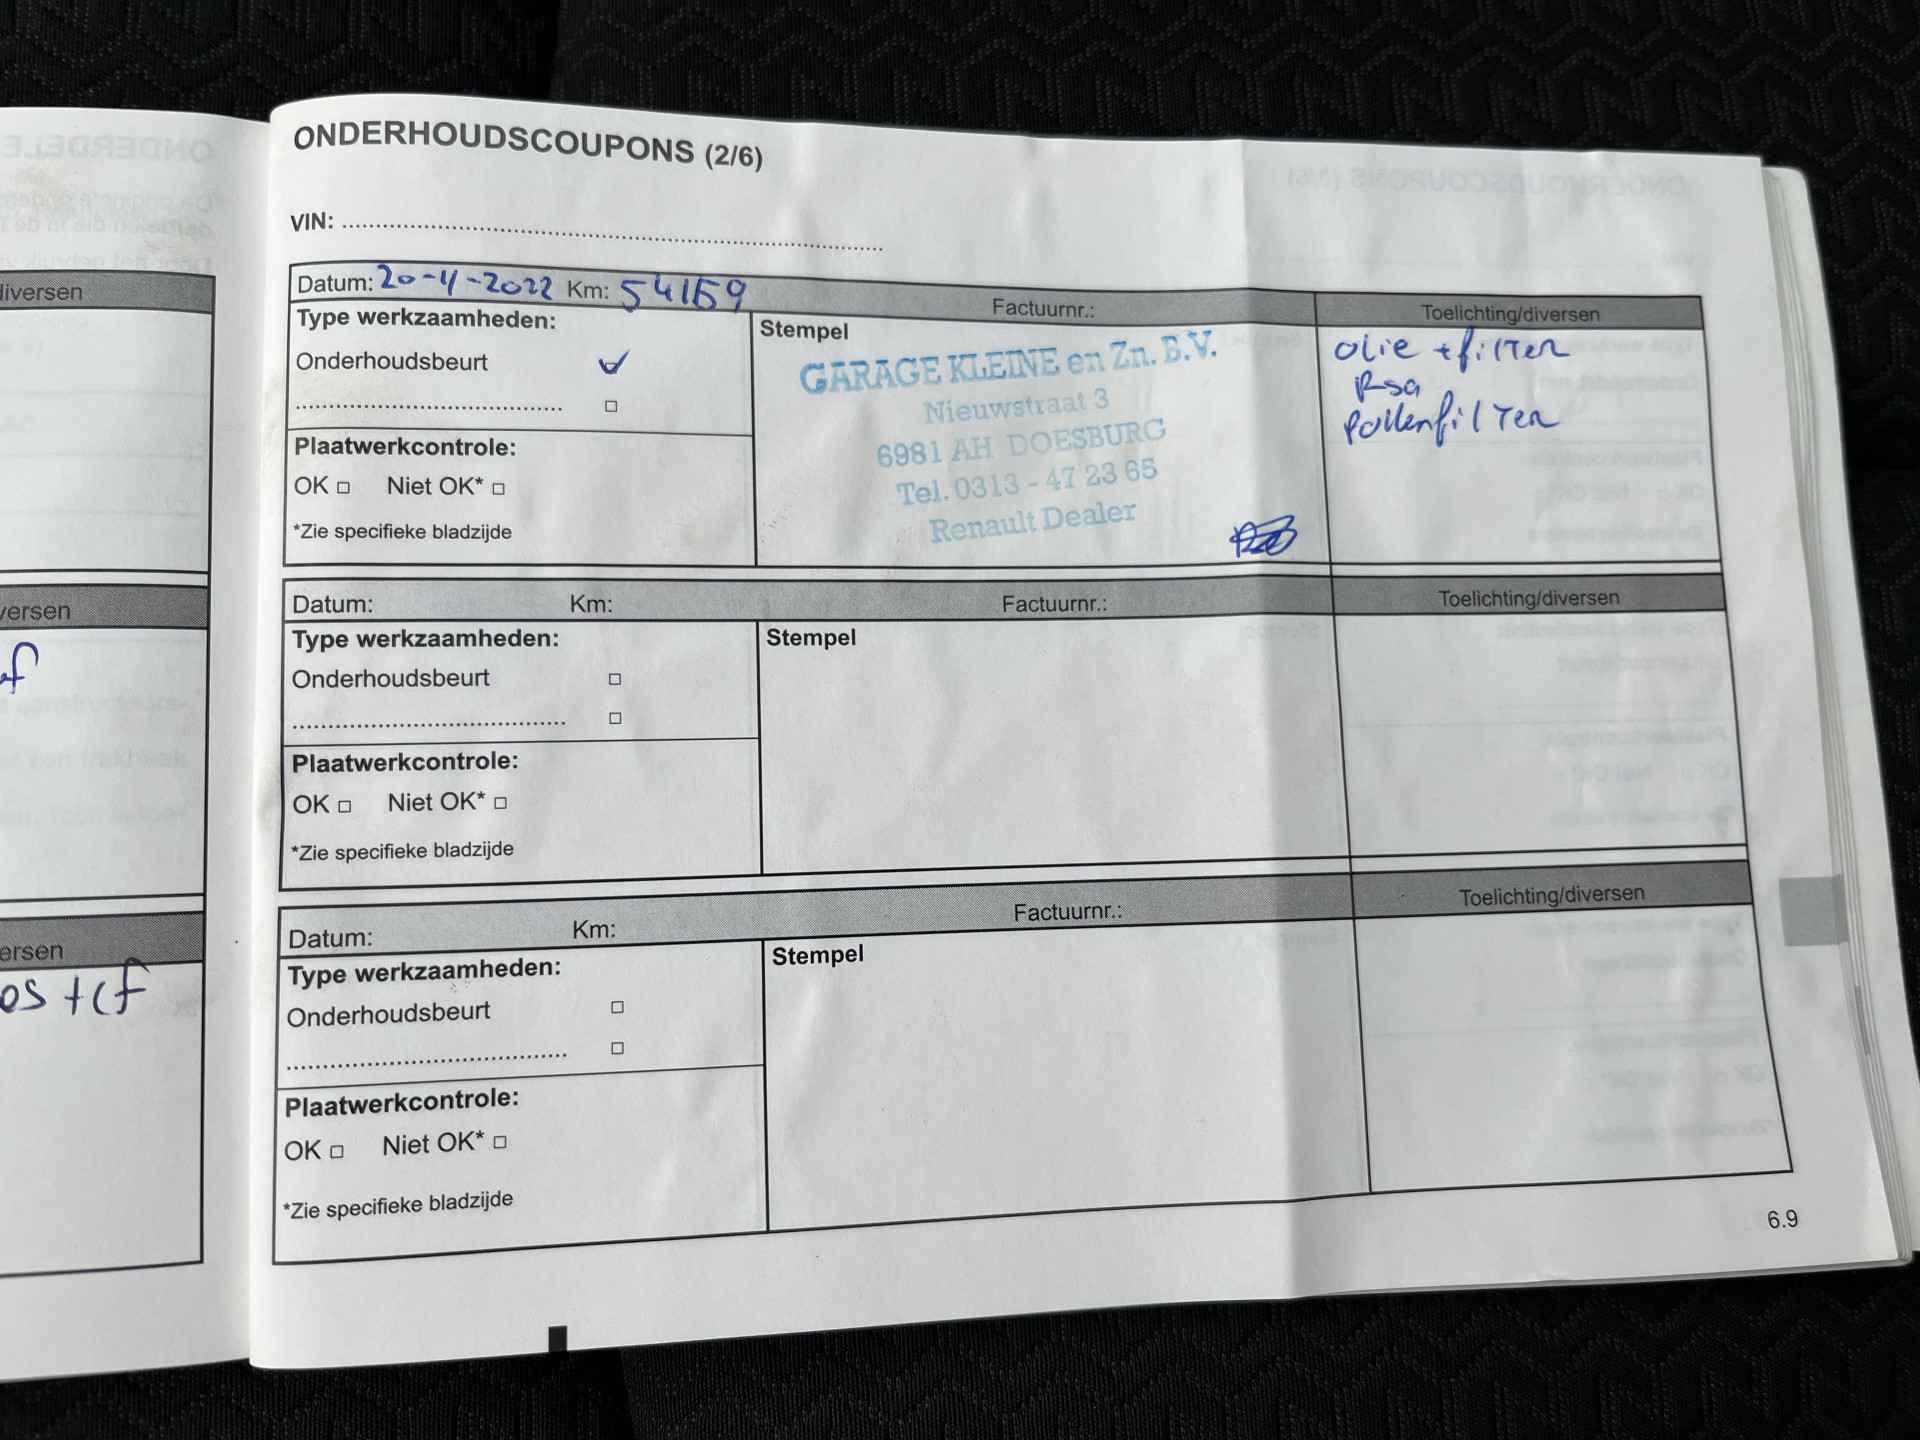 ONDERHOUDSCOUPONS (2/6)
VIN:
Datum: 20-4-2022 Km: 54159 Factuurnr.: Toelichting/diversen
Type werkzaamheden:
Onderhoudsbeurt
Plaatwerkcontrole:
OK □ Niet OK* □
*Zie specifieke bladzijde
Stempel
GARAGE KLEINE en Zn. B.V.
Nieuwstraat 3
6981 AH DOESBURG
Tel. 0313 - 47 23 65
Renault Dealer
olie + filter
Rsa
Pollenfilter
Datum: Km: Factuurnr.: Toelichting/diversen
Type werkzaamheden:
Onderhoudsbeurt □
□
Plaatwerkcontrole:
OK □ Niet OK* □
*Zie specifieke bladzijde
Stempel
Datum: Km: Factuurnr.: Toelichting/diversen
Type werkzaamheden:
Onderhoudsbeurt □
□
Plaatwerkcontrole:
OK □ Niet OK* □
*Zie specifieke bladzijde
Stempel
6.9